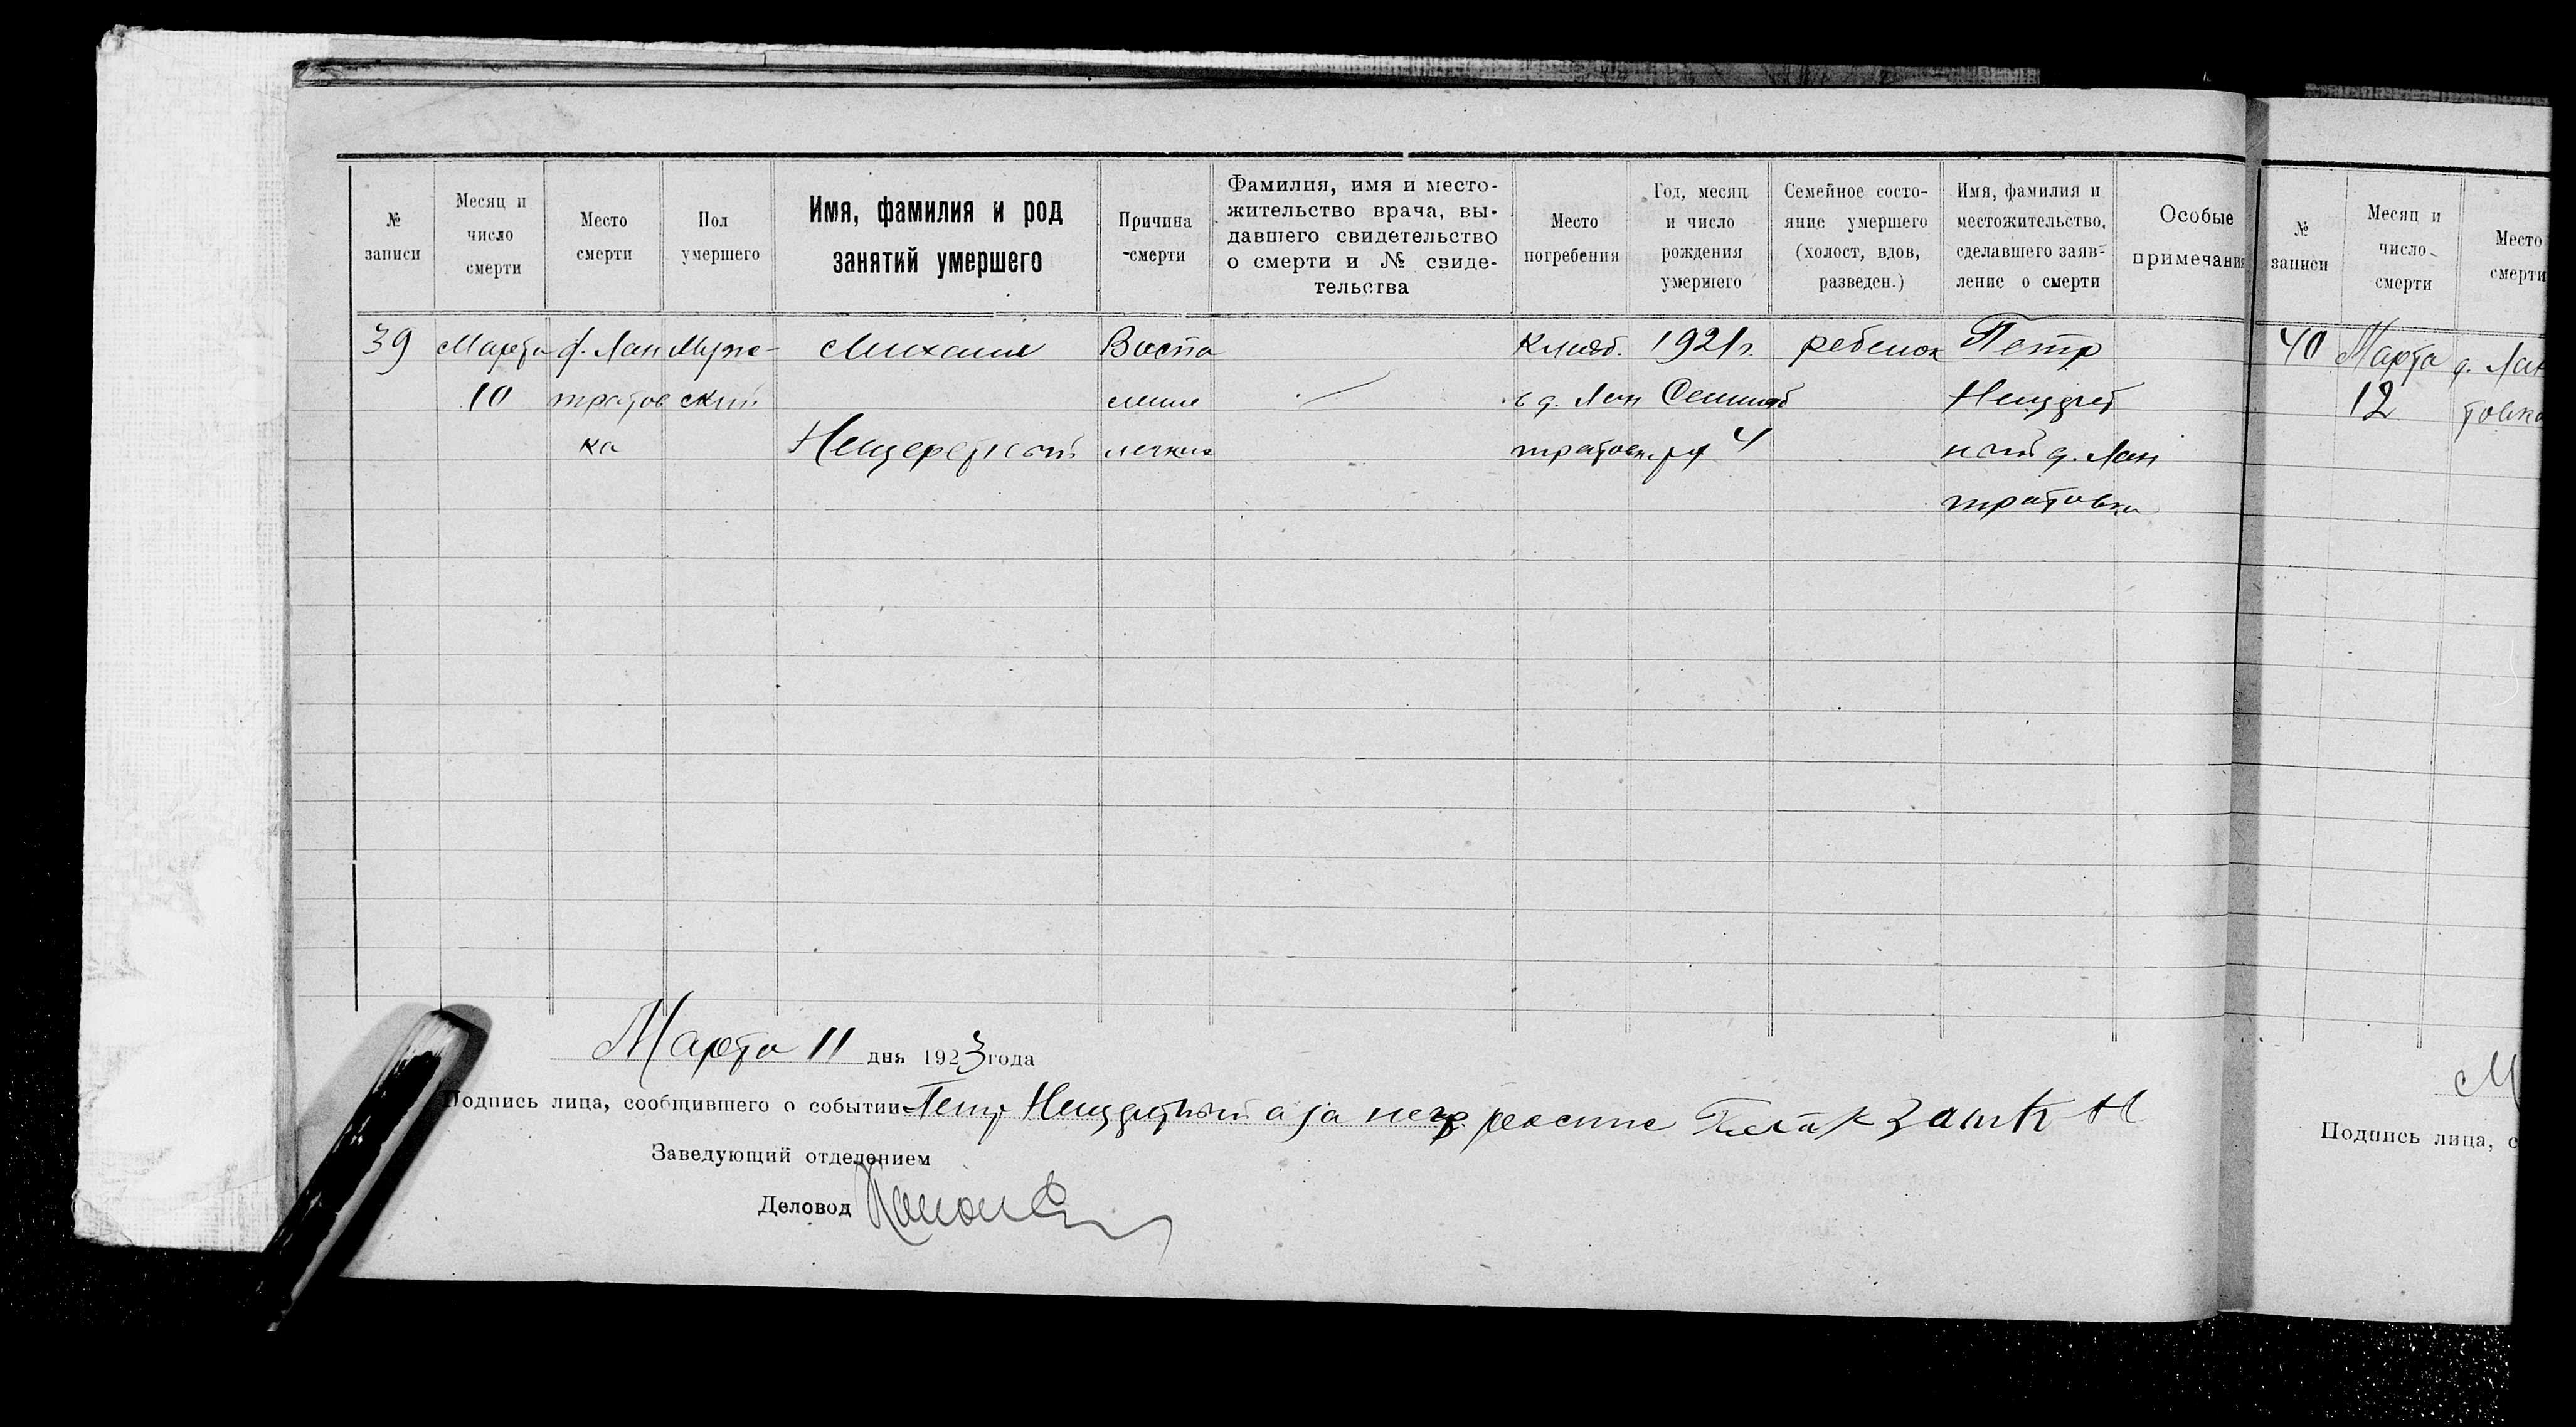 № записи
Месяц и число смерти
Место смерти
Пол умершего
Имя, фамилия и род занятий умершего
Причина смерти
Фамилия, имя и место-
жительство врача, вы-
давшего свидетельство
о смерти и № свиде-
тельства
Место погребения
Год, месяц и число рождения умершего
Семейное состо-
яние умершего
(холост, вдов,
разведен.)
Имя, фамилия и
местожительство,
сделавшего заяв-
ление о смерти
Особые примечания
39 Марта д. Лан Муже- Михаил Воспа Кладб. 1921 г. ребенок Петр
10 тратов ский ление в д. Лан Сентяб
ка Нещеретный легких тратовк. ря 4 ный д. Лан
тратовка
Марта 11 дня 1923 года
Подпись лица, сообщившего о событии Петр а за негр
Заведующий отделением
Деловод
№ записи
Месяц и число смерти
Место смерти
40 Марта д. Лан
12 товка
М
Подпись лица, с